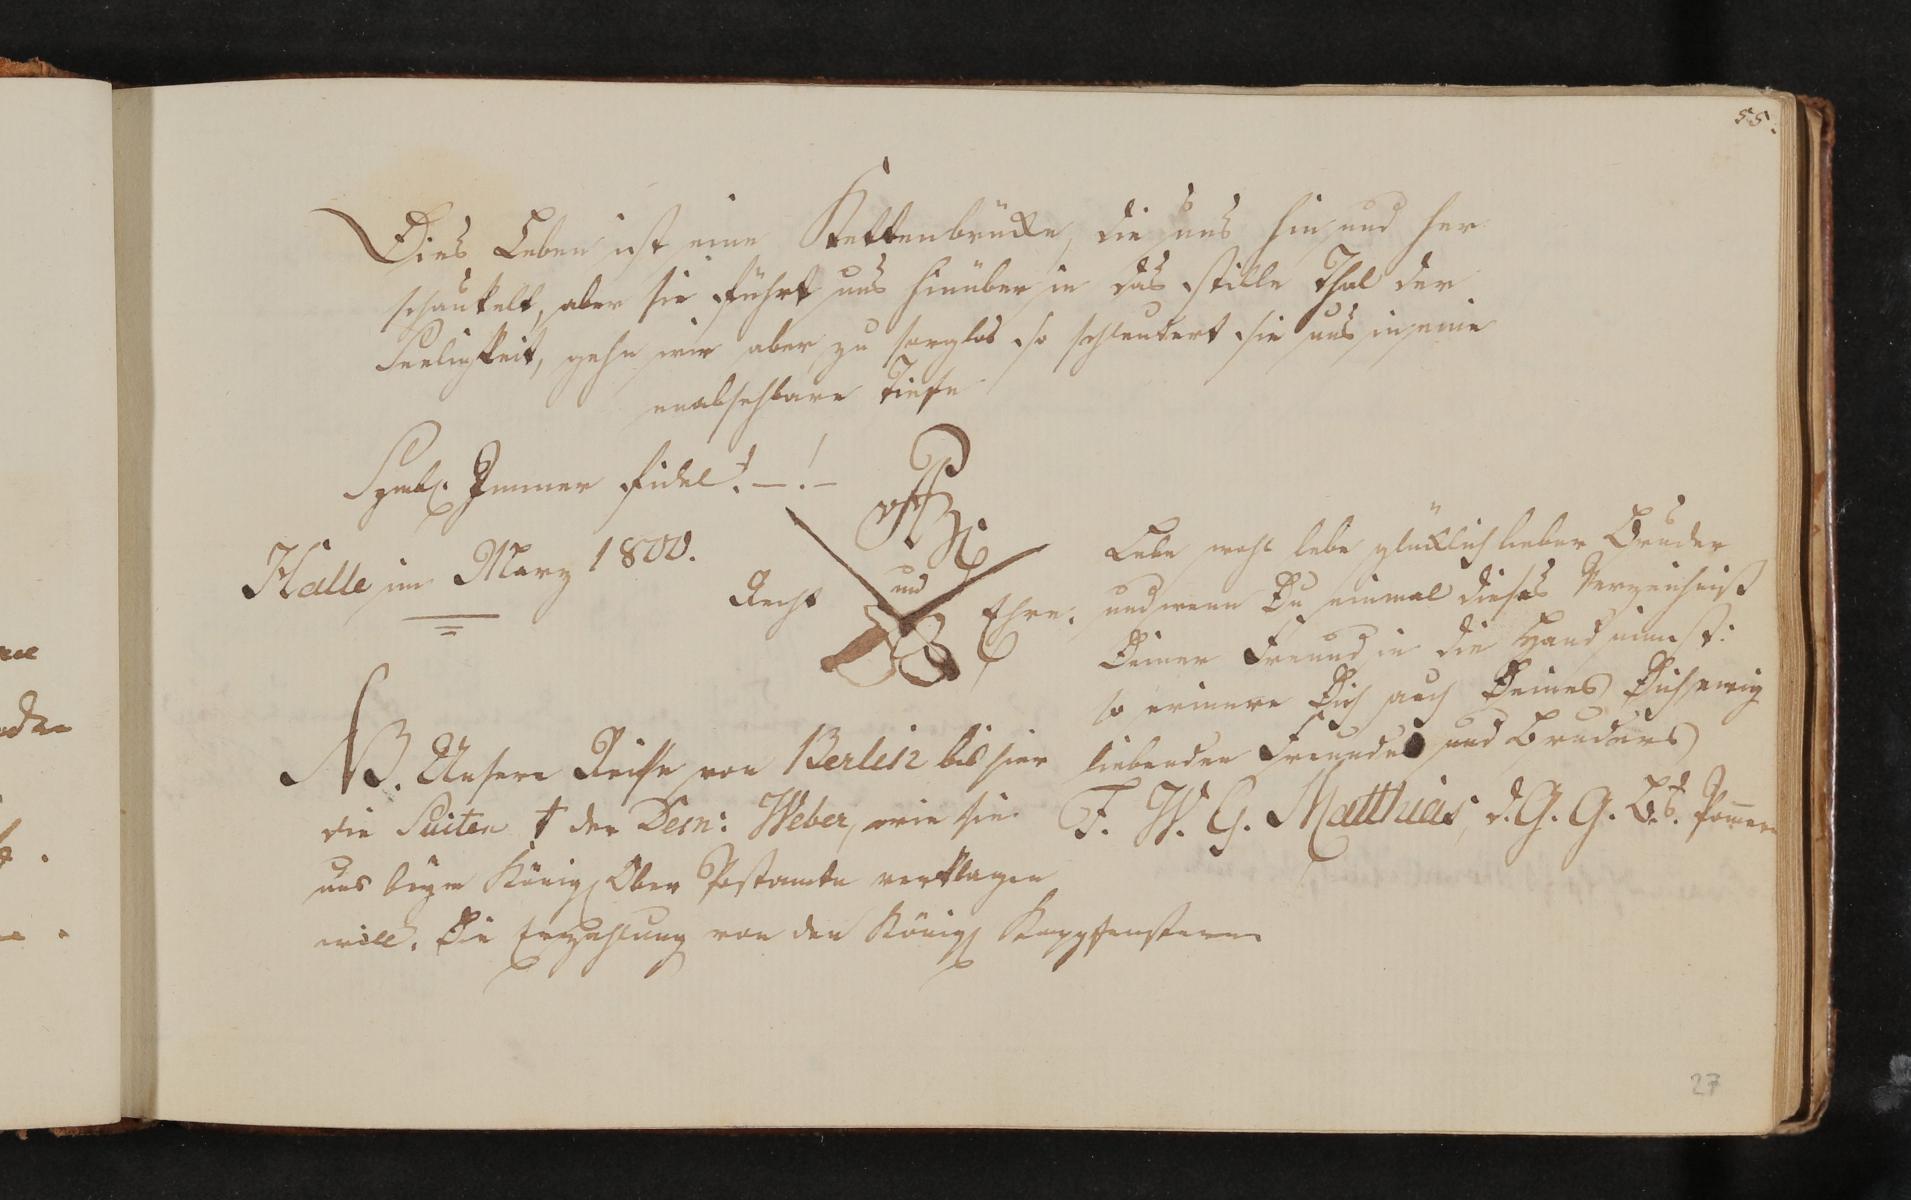 55.
Dies Leben ist eine Kettenbrükke, die uns hin und her
schaukelt, aber sie führt uns hinüber in das stille Thal der
Seeligkeit, gehn wir aber zu sorglos so schleudert sie uns in eine
unabsehbare Tiefe
Symb. Immer fidel. — ! —
Halle im Marz 1800.
Recht und Ehre.
Lebe wohl lebe glüklich lieber Bruder
und wenn Du einmal dieses Verzeichniß
Deiner Freund in die Hand nimst:
so erinnre Dich auch Deines Dich ewig
liebenden Freundes und Bruders
F. W. G. Matthias, d. G. G. B. Pommern
NB. Unsere Reise von Berlin bis hier
die Suiten † der Dem: Weber, wie sie
uns beym Königl Ober Postamte verklagen
will. Die Erzehlung von den Königl
27